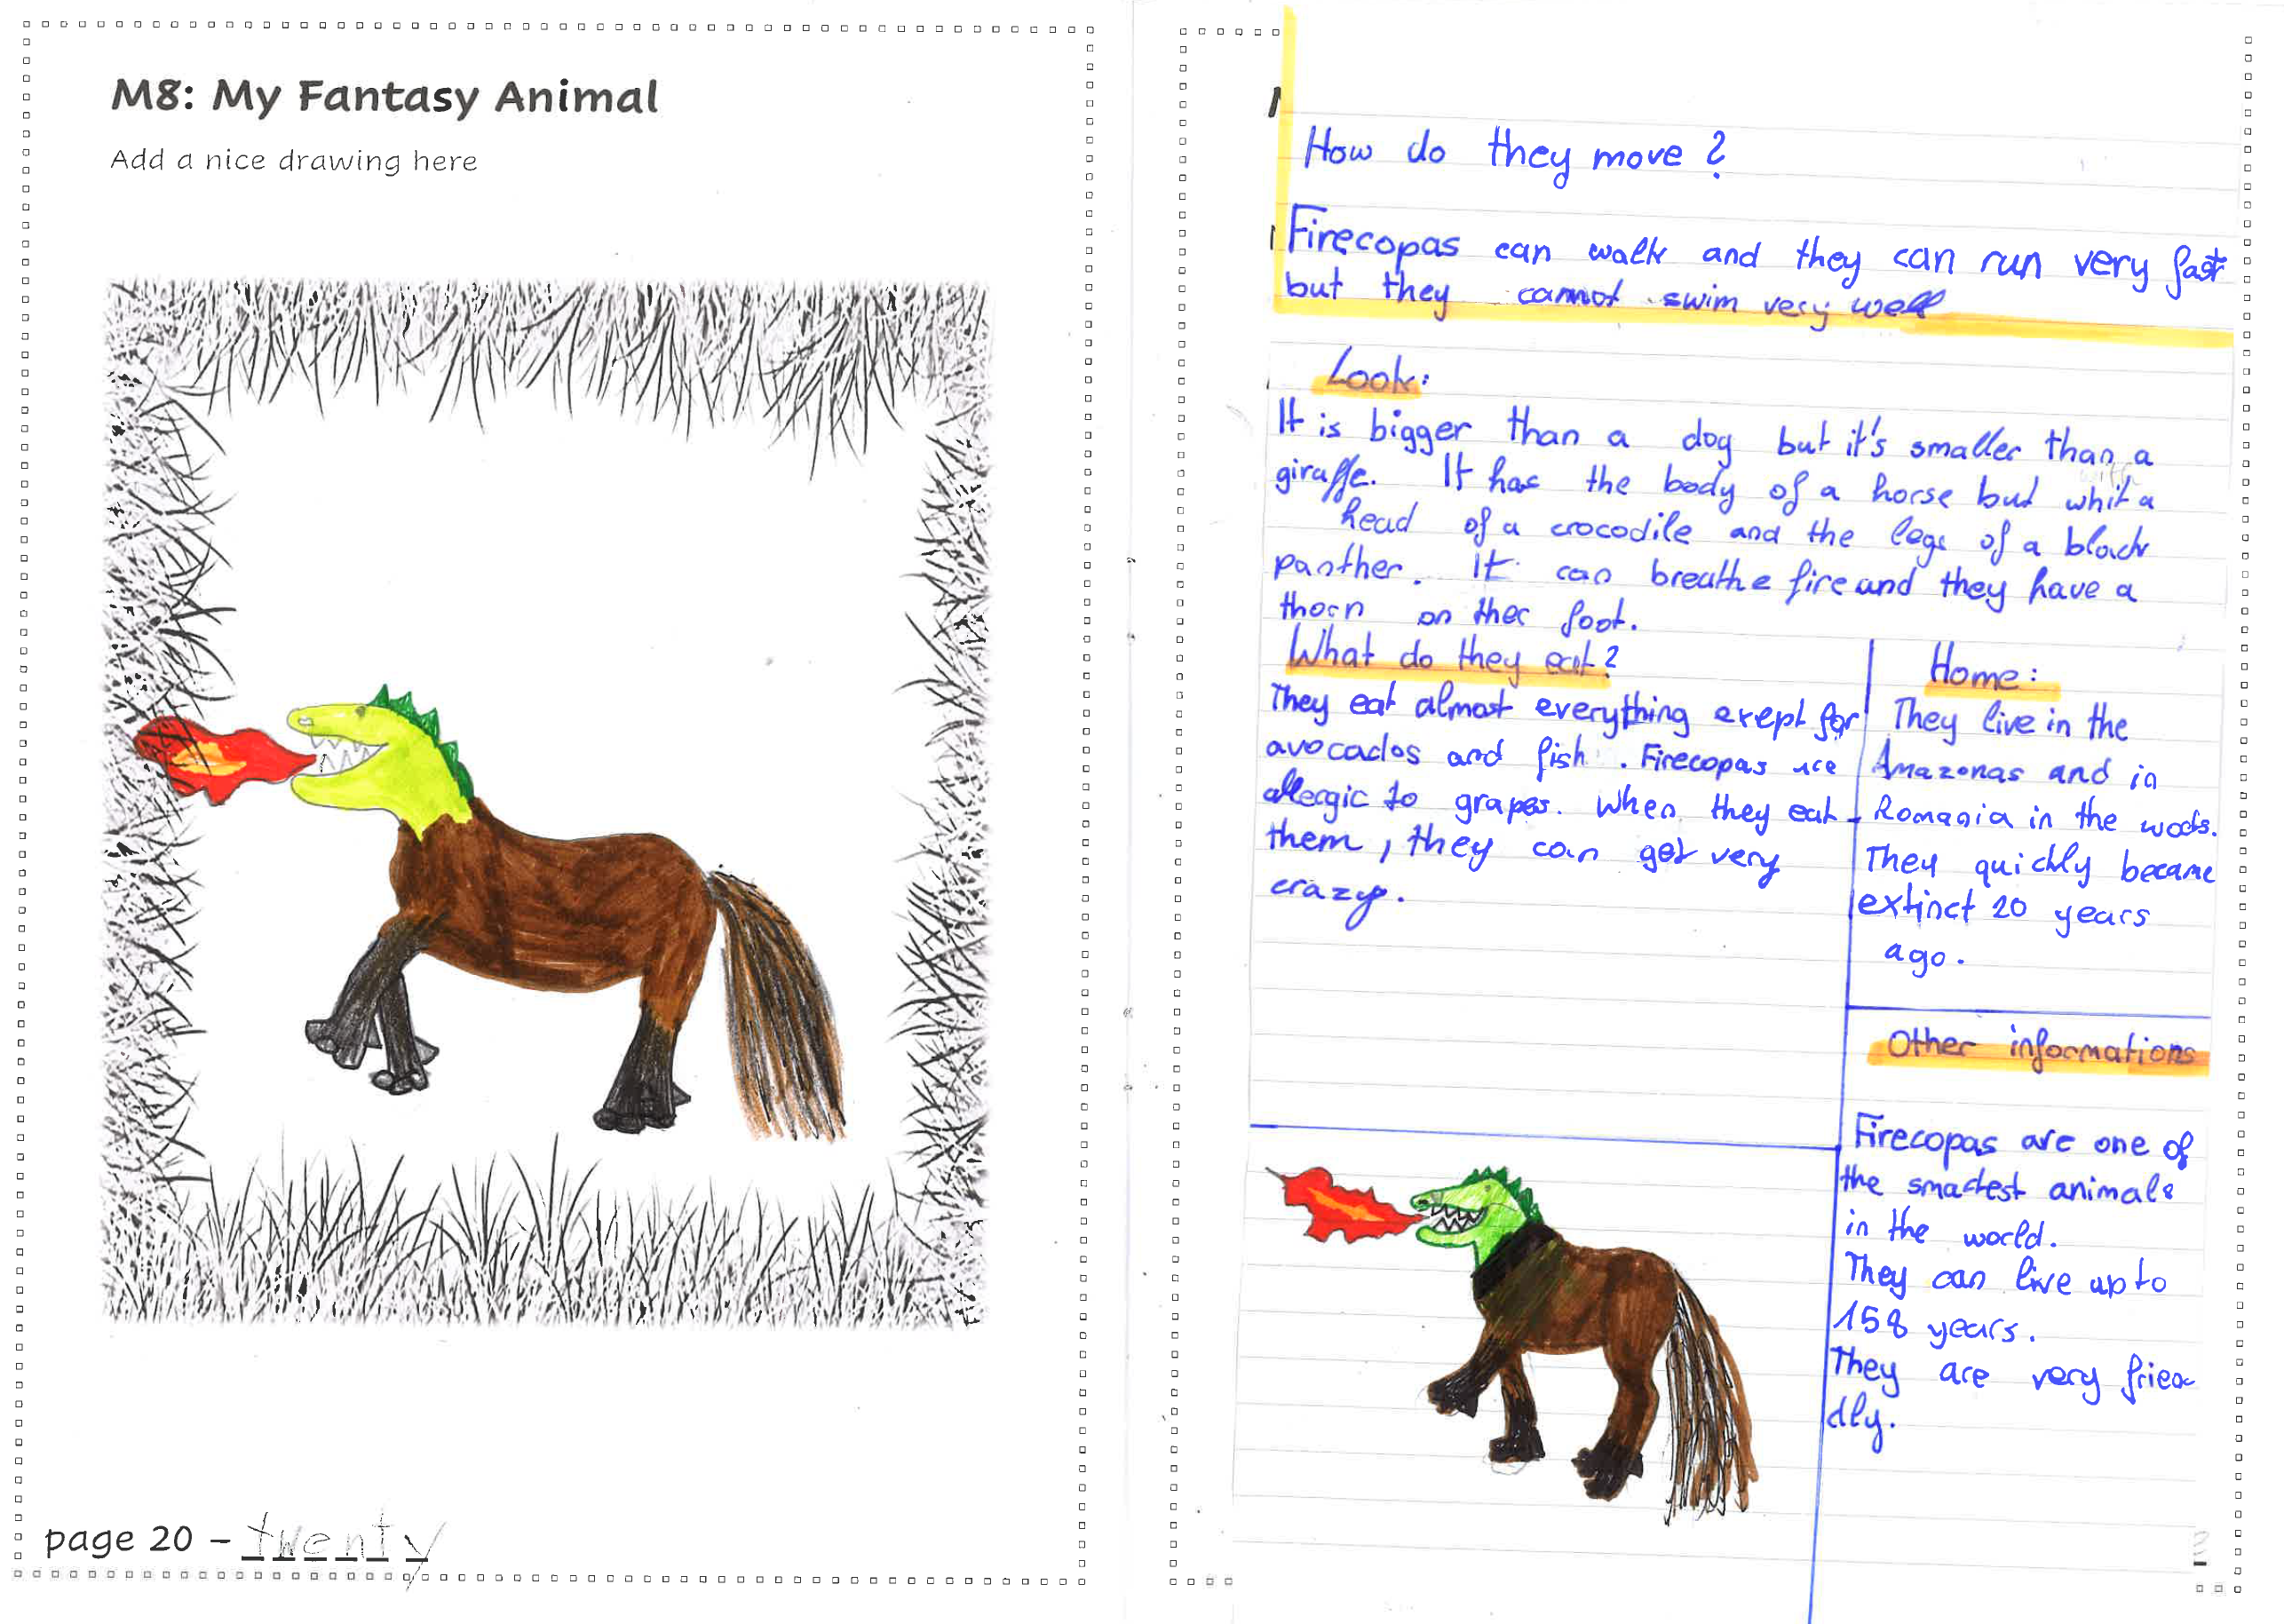 M8: My Fantasy Animal
Add a nice drawing here
page 20 - twenty
How do they move?
Firecopas can walk and they can run very fast
but they cannot swim very well
Look:
It is bigger than a dog but it's smaller than a
giraffe. It has the body of a horse but whit a
head of a crocodile and the legs of a black
panther. It can breathe fire and they have a
thorn on ther foot.
What do they eat?
They eat almost everything exept for
avocados and fish. Firecopas are
allergic to grapes. When they eat
them, they can get very
crazy.
Home:
They live in the
Amazonas and in
Romania in the woods.
They quickly became
extinct 20 years
ago.
Other informations
Firecopas are one of
the smartest animals
in the world.
They can live up to
158 years.
They are very frien
dly.